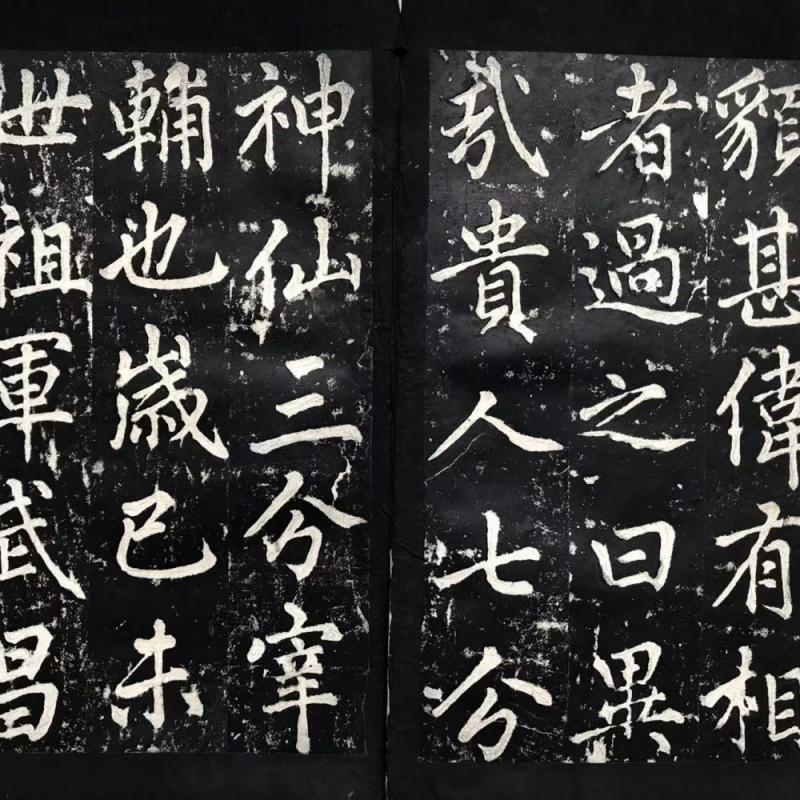 䫉甚偉有相
者過之曰異
哉貴人七分
神仙三分宰
輔也歲已未
世祖軍武昌